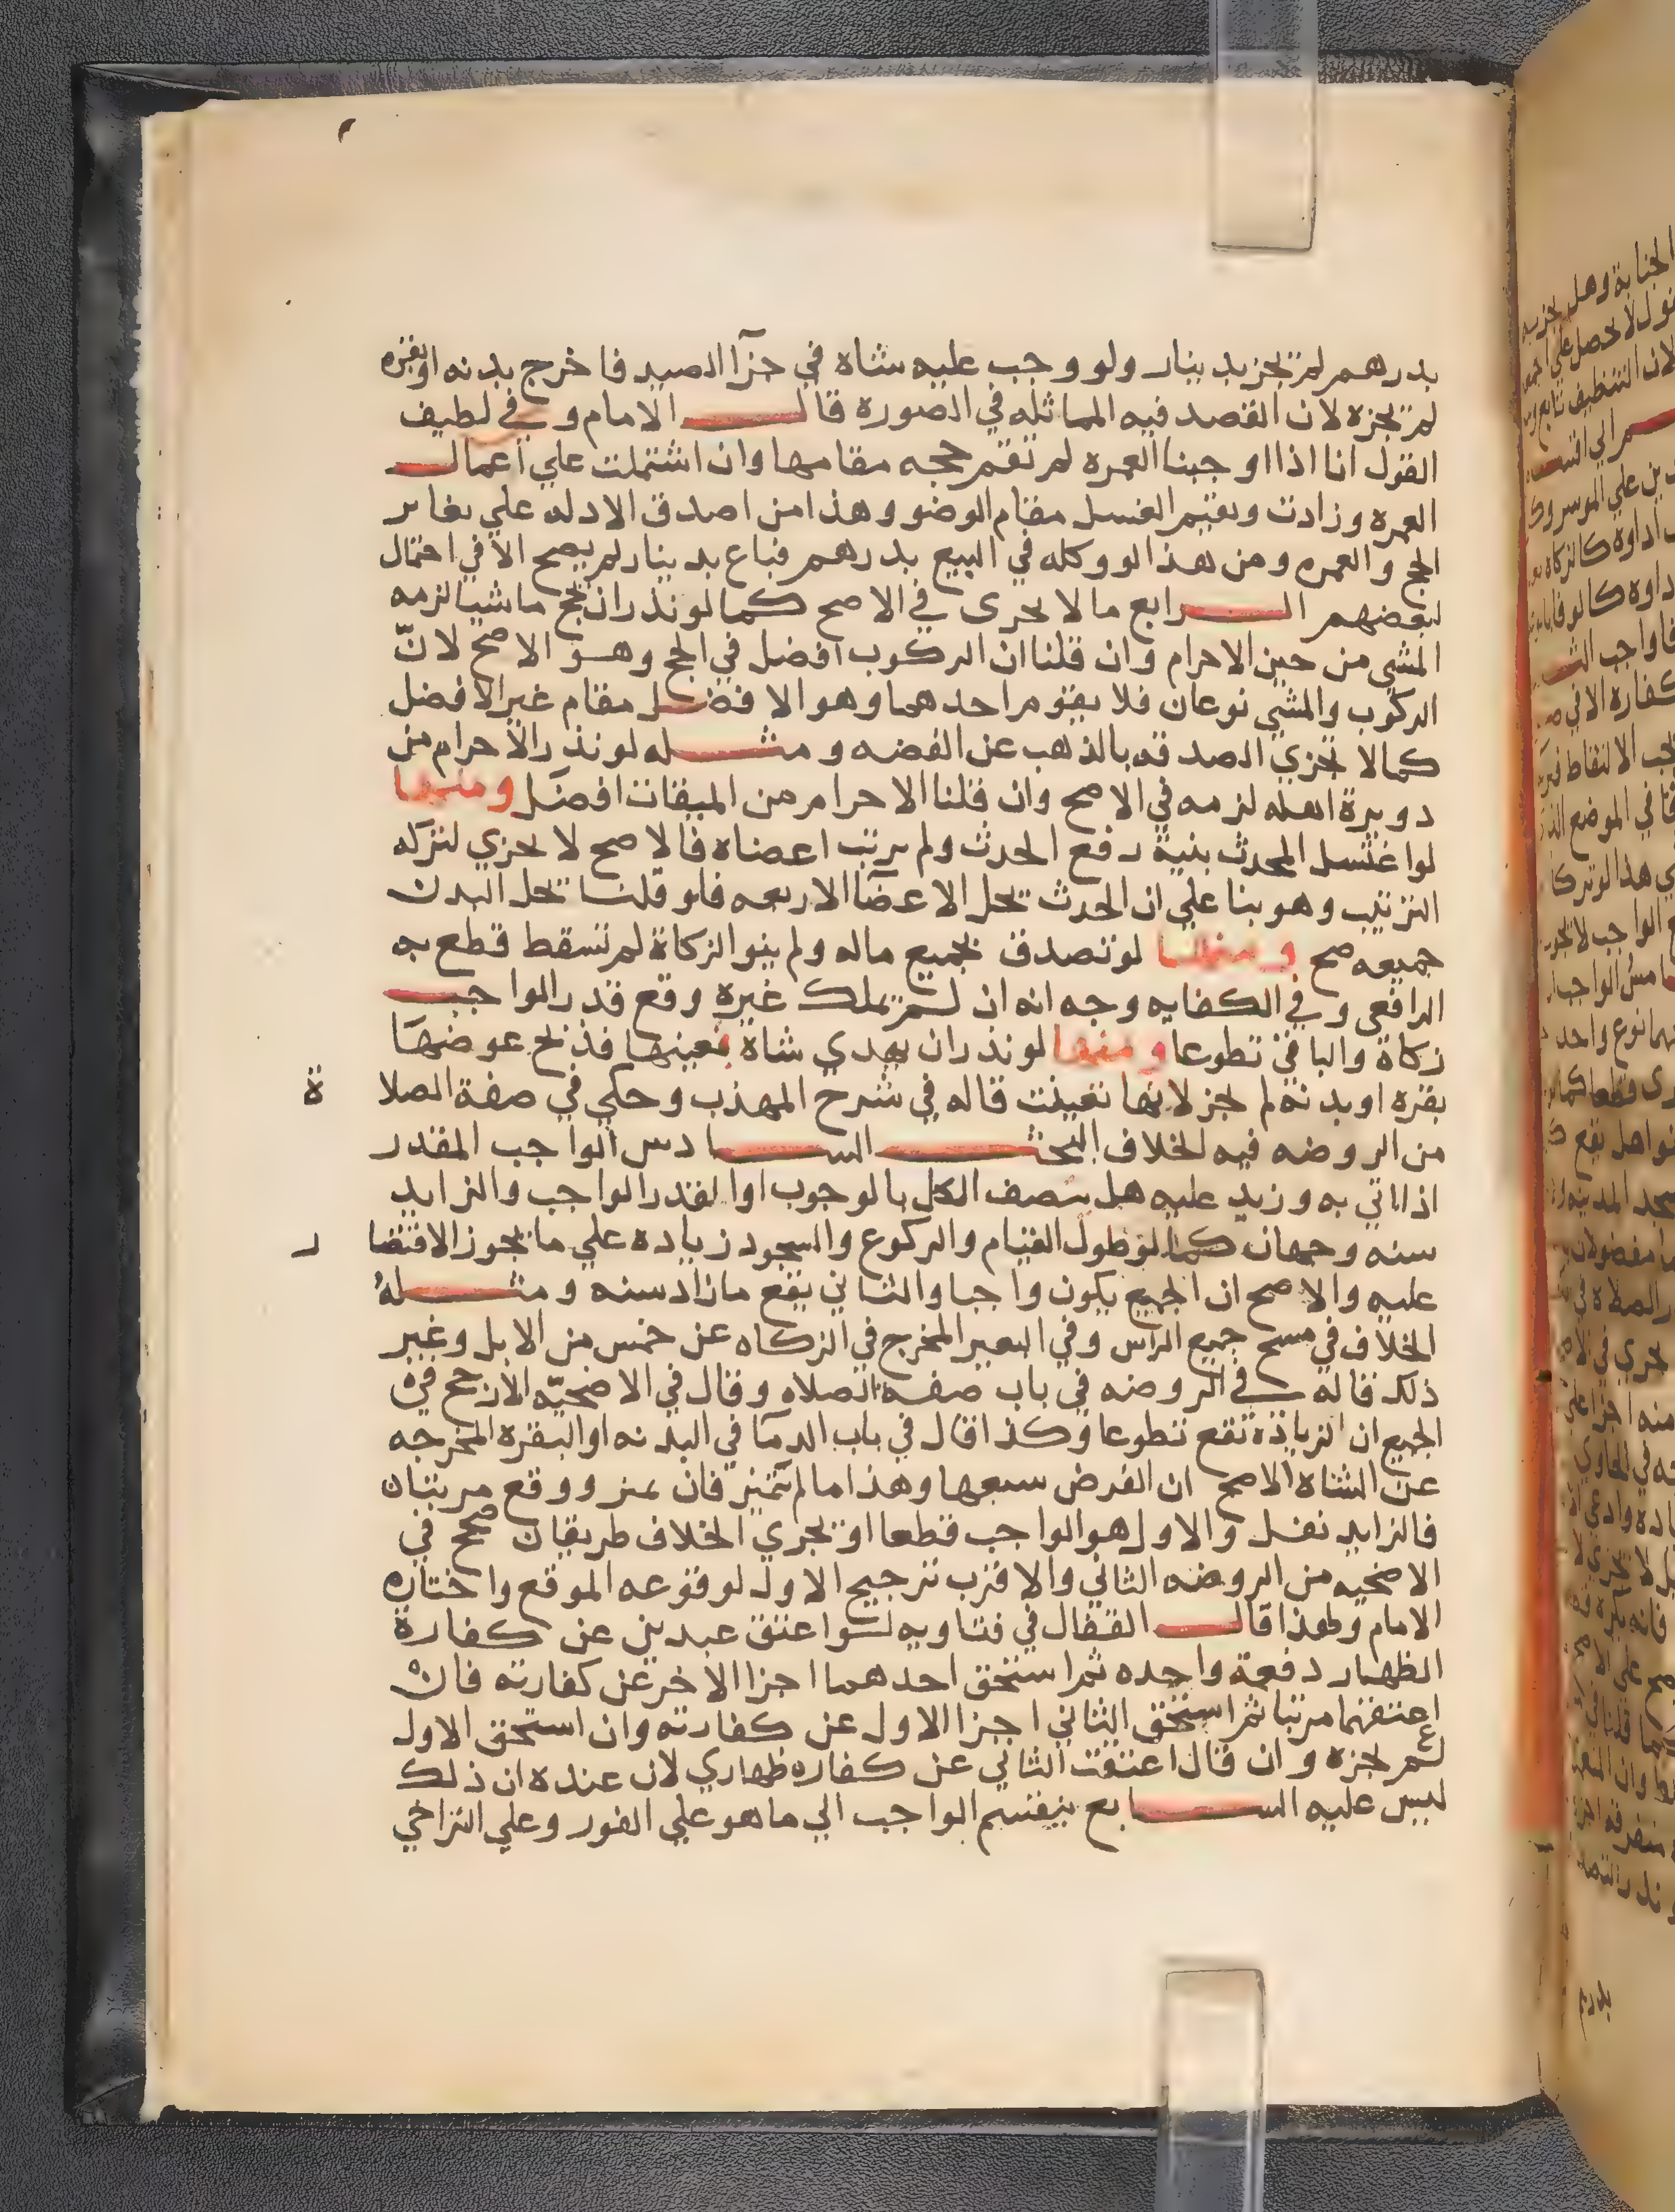 بدرهم لم تجز بدينار ولو وجب عليه شاة في جزآ الصيد فاخرج بدنه او بقره
لم تجزه لان القصد فيه المماثله في الصورة قال الامام وفي لطيف
القول انا اذا اوجبنا العمره لم تقم حجه مقامها وان اشتملت علي اعمال
العمره وزادت ويقيم الغسل مقام الوضو وهذا من اصدق الادله علي تغاير
الحج والعمره ومن هذا لو وكله في البيع بدرهم فباع بدينار لم يصح الا في احتمال
لبعضهم الرابع ما لا يجرى في الاصح كما لو نذر ان يحج ماشيا لزمه
المشي من حين الاحرام وان قلنا ان الركوب افضل في الحج وهو الاصح لانّ
الركوب والمشي نوعان فلا يقوم احدهما وهو الافضل مقام غير الافضل
كما لا تجزي الصدقه بالذهب عن الفضه ومثله لو نذر الاحرام من
دويرة اهله لزمه في الاصح وان قلنا الاحرام من الميقات افضل ومنها
لو اغتسل المحدث بنية رفع الحدث ولم يرتب اعضاه فالاصح لا يجزي لتركه
الترتيب وهو بنا علي ان الحدث يحل الاعضآ الاربعه فلو قلنا يحل البدن
جميعه صح ومنها لو تصدق بجميع ماله ولم ينو الزكاة لم تسقط قطع به
الرافعى وفي الكفايه وجه انه ان لم يملك غيره وقع قدر الواجب
زكاة والباقى تطوعا ومنها لو نذر ان يهدي شاة بعينها فذبح عوضها
بقره او بدنه لم يجز لانها تعينت قاله في شرح المهذب وحكي في صفة الصلاة
من الروضه فيه لخلاف البحث السادس الواجب المقدر
اذا اتي به وزيد عليه هل يتصف الكل بالوجوب او القدر الواجب والزايد
سنه وجهان كما لو طول القيام والركوع والسجود زياده علي ما يجوز الاقتصار
عليه والاصح ان الجميع يكون واجبا والثاني يقع ما زاد سنه ومثلهُ
الخلاف في مسح جميع الراس وفي البعير المخرج في الزكاه عن خمس من الابل وغير
ذلك قاله في الروضه في باب صفة الصلاه وقال في الاضحيّه الارجح في
الجميع ان الزيادة تقع تطوعا وكذا قال في باب الدمآ في البدنه او البقره المخرجه
عن الشاة الاصح ان الفرض سبعها وهذا ما لم يتميز فان تميز ووقع مرتبان
فالزايد نفل والاول هو الواجب قطعا او يجري الخلاف طريقان صحح في
الاضحيه من الروضه الثاني والاقرب ترجيح الاول لوقوعه الموقع واختاره
الامام ولهذا قال القفال في فتاويه لو اعتق عبدين عن كفارة
الظهار دفعة واحده ثم استحق احدهما اجزا الاخر عن كفارته فان
اعتقهما مرتبا ثم استحق الثاني اجزا الاول عن كفارته وان استحق الاول
لم يجزه وان قال اعتقت الثاني عن كفاره ظهاري لان عنده ان ذلك
ليس عليه السابع ينقسم الواجب الي ما هو علي الفور وعلي التراخي